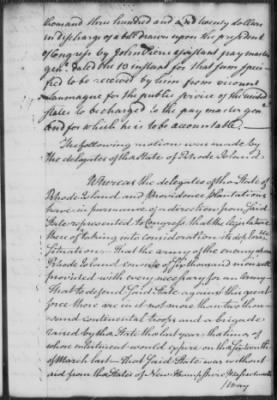 thousand three hundred and and twenty dollars
in discharge of a bill drawn upon the president
of Congress by John Pierce assistant pay master
gen! dated the 13 instant for that sum speci-
fied to be received by him from viscount
Mauragne for the public service of the united
states to be charged to the pay master gen!
and for which he is to be accountable. —
The following motion was made by
the delegates of the state of Rhode Island.
Whereas the delegates of the State of
Rhode Island and Providence plantations
have in pursuance of a direction from said
State represented to Congress that the legislature
there of taking into consideration its
situation That the army of the enemy on
Rhode Island consists of Six thousand men well
provided with every necessary for an Army
That to defend said State against this great
force there are not more than two thou
sand continental troops and a brigade
raised by that State the last year, the time of
whose enlistment would expire on the
of March last — That said State was without
aid from the States of New Hampshire Massachusetts